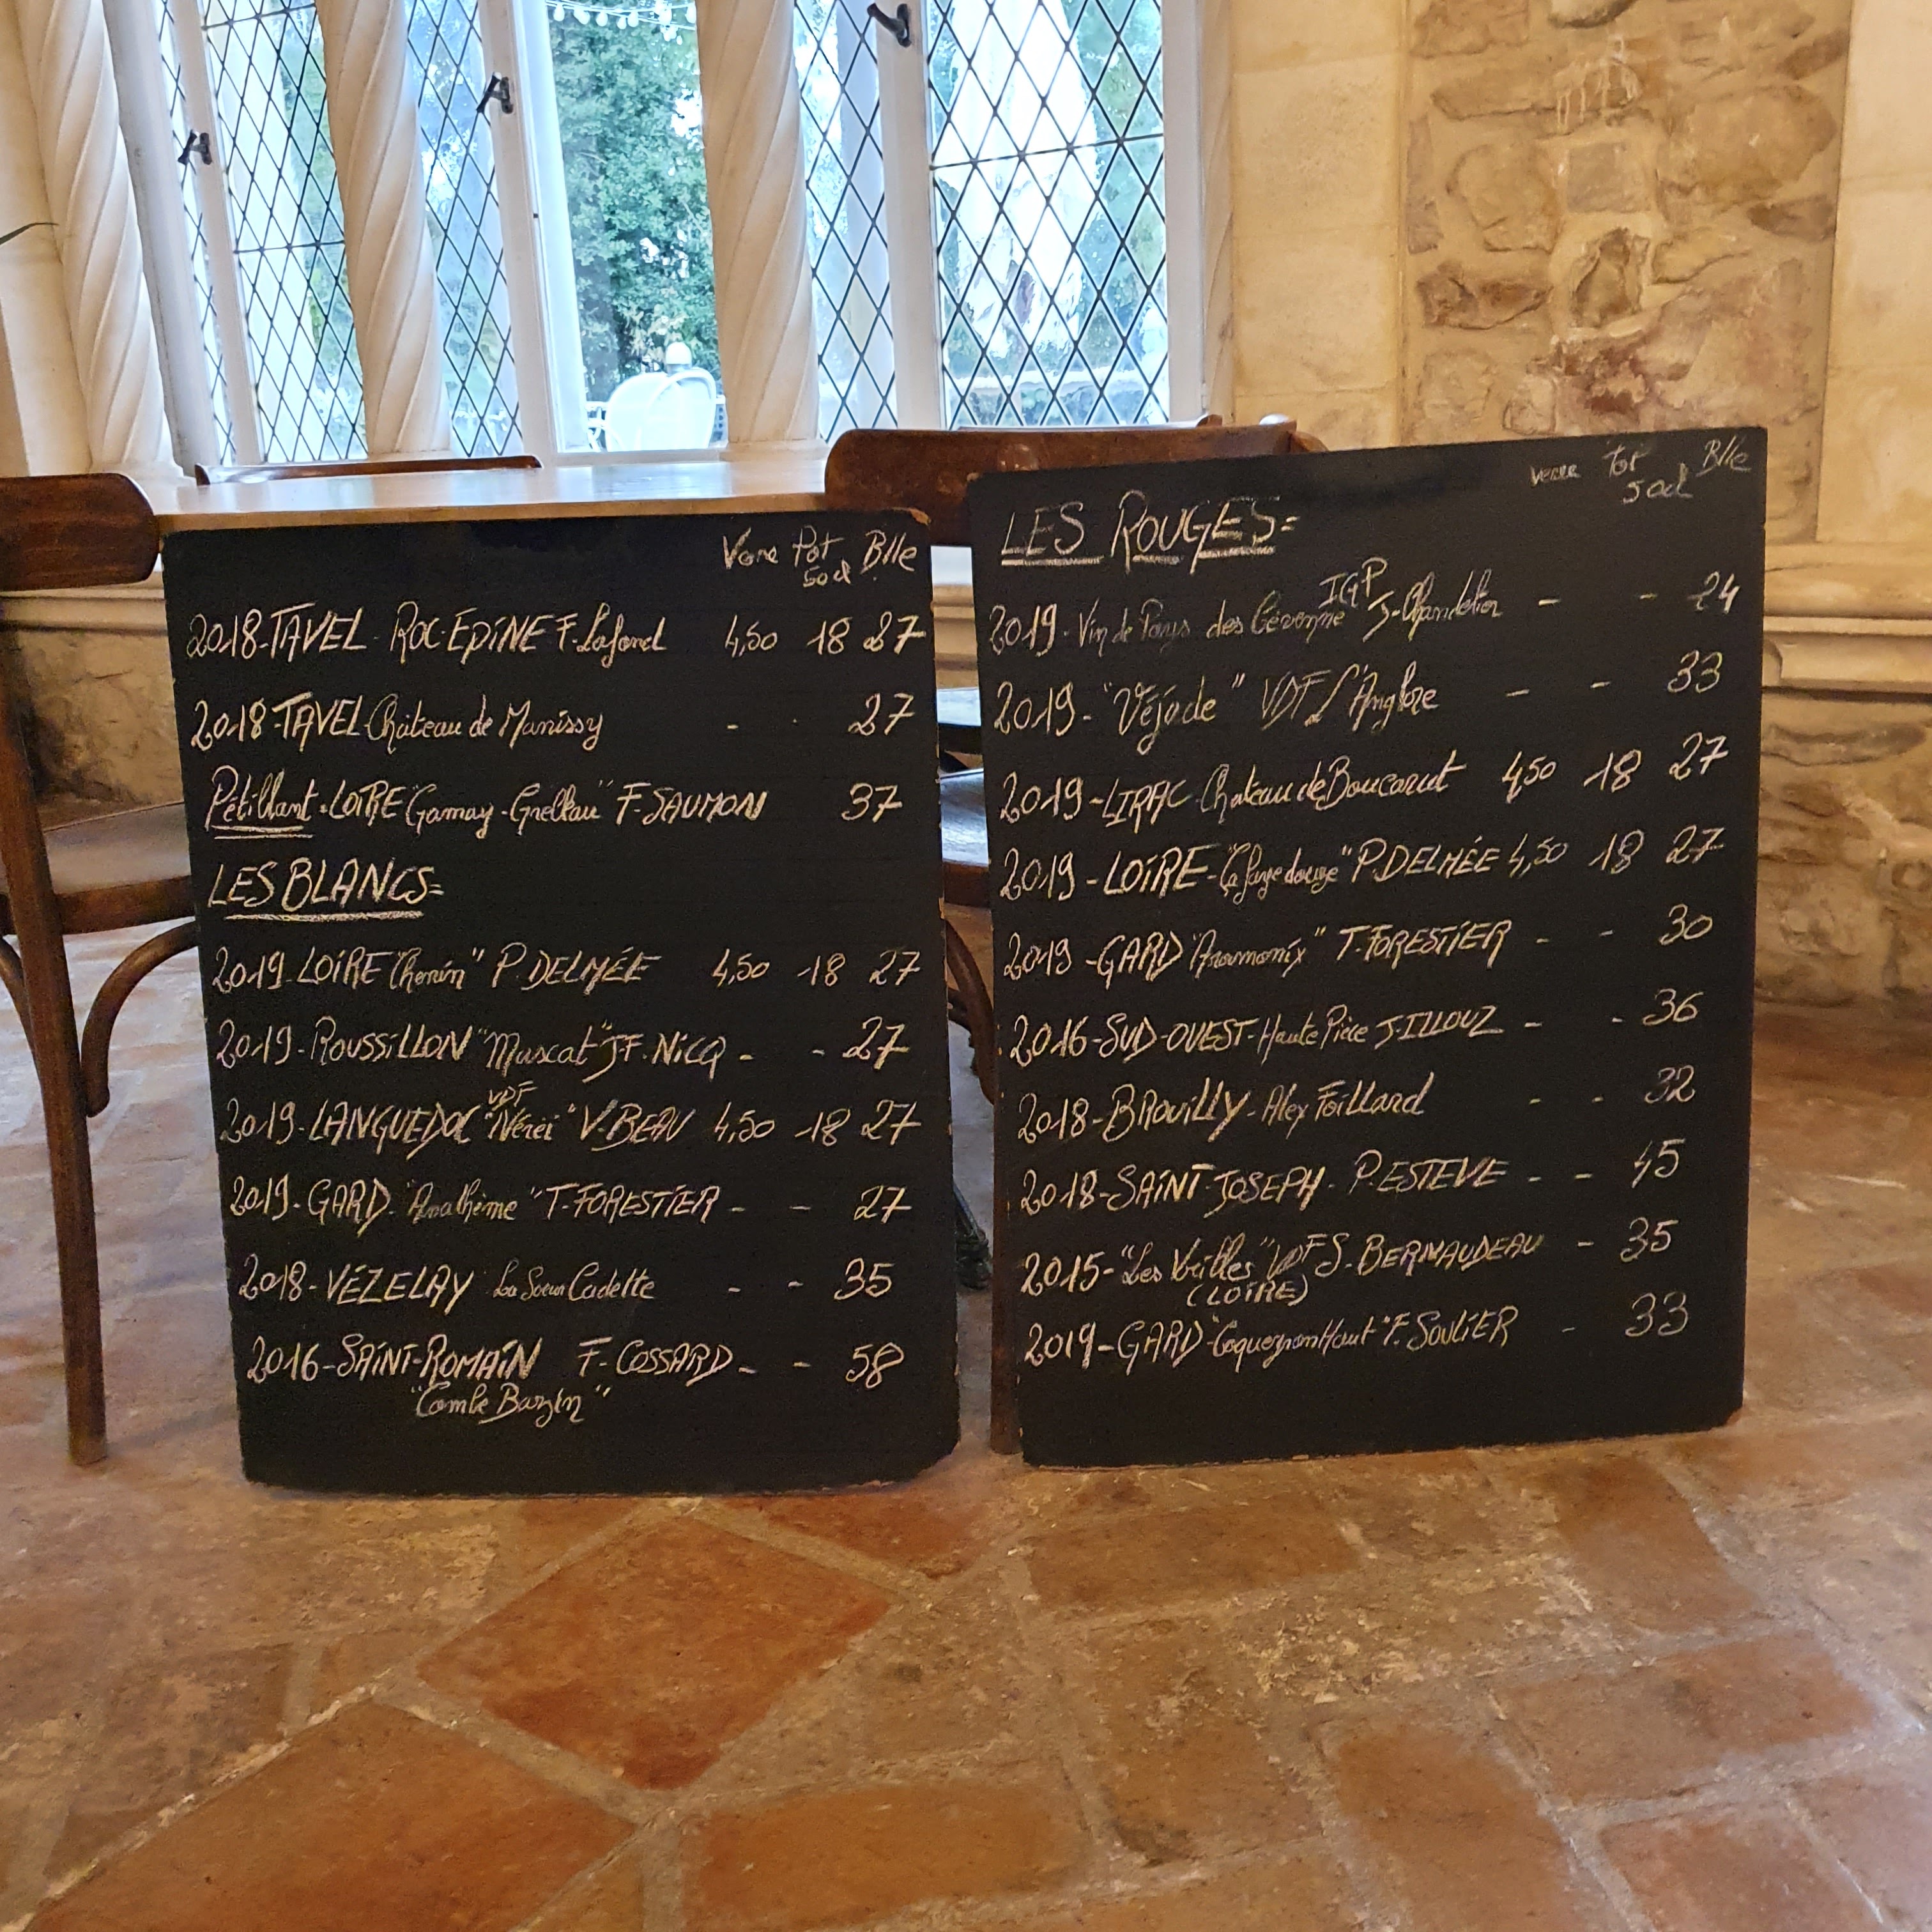 Verre Pot Blle
50 cl
2018-TAVEL-ROC-EPINE F. Lafond 4,50 18 27
2018-TAVEL Château de Manissy - - 27
Pétillant-LOIRE "Gamay-Grolleau" F-SAUMON 37
LES BLANCS=
2019-LOIRE "Chenin" P. DELMÉE 4,50 18 27
2019-ROUSSILLON "Muscat" JF. NICQ - - 27
VDF
2019-LANGUEDOC V. BEAU 4,50 18 27
2019-GARD "Anathème" T-FORESTIER - - 27
2018-VÉZELAY La Soeur Cadette - - 35
2016-SAINT-ROMAIN F-COSSARD - - 58
"Combe Bazin"
verre Pot Blle
50cl
LES ROUGES=
IGP
2019-Vin de Pays des Cévenne J-Chandelier - - 24
2019-"Véjade" VDF L'Anglore - - 33
2019-LIRAC Chateau de Boucarut 450 18 27
2019-LOIRE- P. DELMÉE 4,50 18 27
2019-GARD T-FORESTIER - - 30
2016-SUD-OUEST-Haute Pièce J-ILLOUZ - - 36
2018-BROUILLY-Alex Foillard - - 32
2018-SAINT-JOSEPH-P. ESTEVE - - 45
2015-"Les VDF S. BERNAUDEAU - 35
(LOIRE)
2019-GARD F. SOULIER - 33